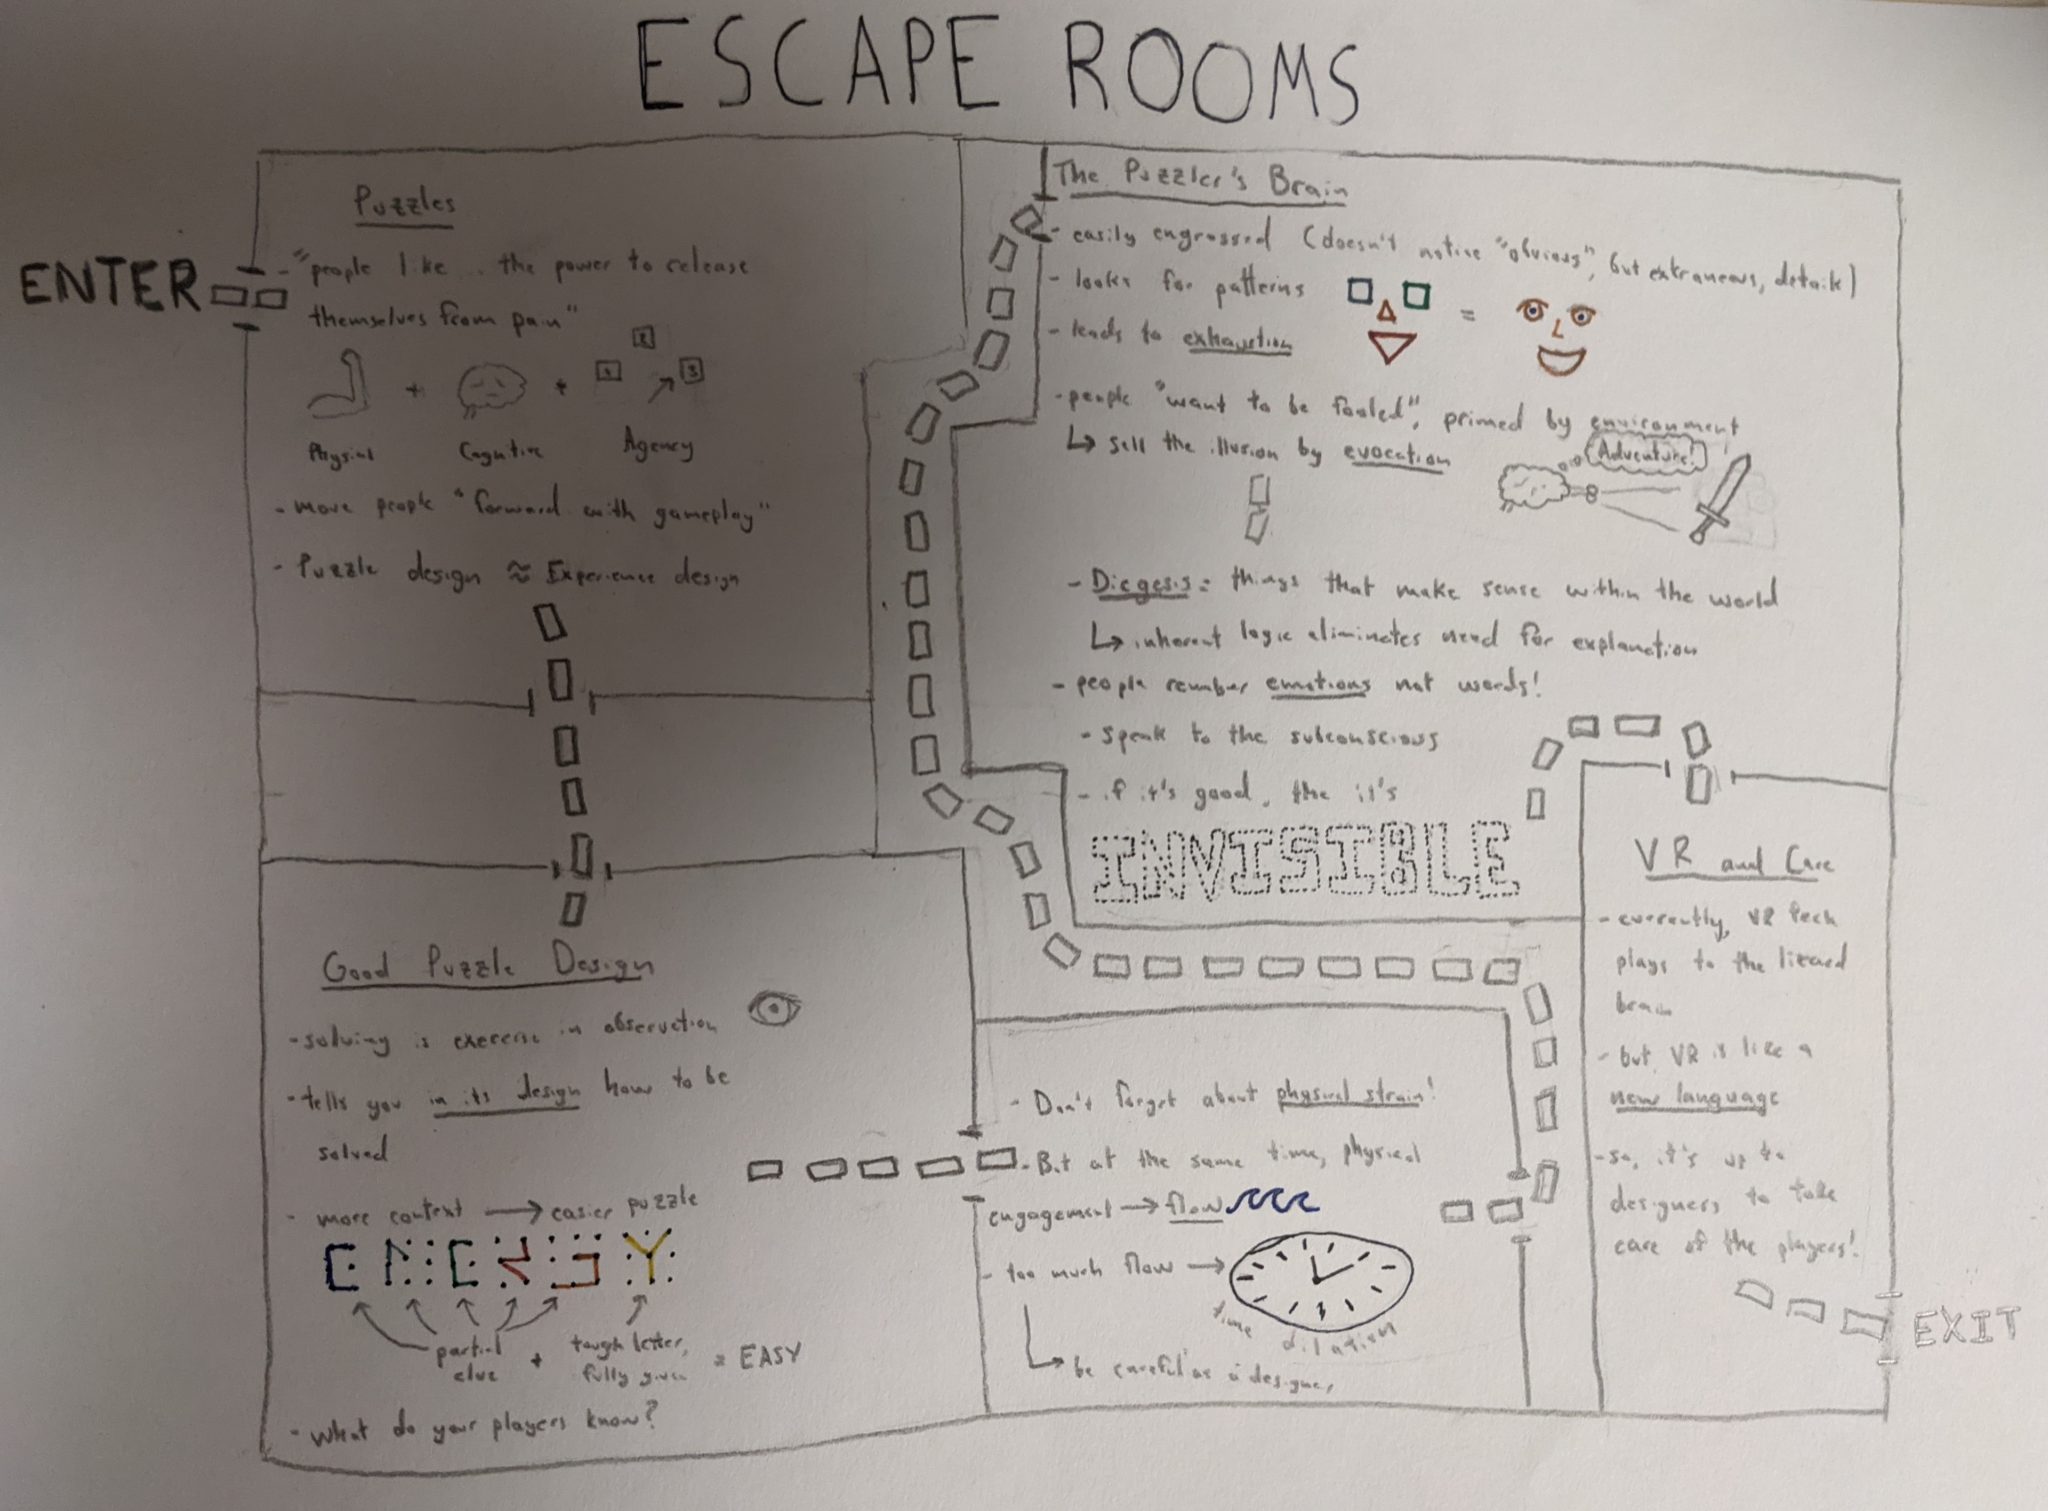 ESCAPE ROOMS
ENTER
Puzzles
- "people like.. the power to release
themselves from pain"
1
2
3
+
+
Physical
Cognitive
Agency
- move people "forward with gameplay"
- Puzzle design ≈ Experience design
Good Puzzle Design
- solving is exercise in observation
- tells you in its design how to be
solved
- more context → easier puzzle
ENERGY
partial
clue
+
tough letter,
fully given
= EASY
- What do your players know?
- Don't forget about physical strain!
- But at the same time, physical
engagement → flow
- too much flow →
time dilation
↳ be careful as a designer
The Puzzler's Brain
- easily engrossed (doesn't notice "obvious", but extraneous, details)
- looks for patterns
=
- leads to exhaustion
- people "want to be fooled", primed by environment
↳ sell the illusion by evocation
Adventure!
- Diegesis = things that make sense within the world
↳ inherent logic eliminates need for explanation
- people remember emotions not words!
- speak to the subconscious
- if it's good, the it's
INVISIBLE
VR and Care
- currently, VR tech
plays to the lizard
brain
- but VR is like a
new language
- so, it's up to
designers to take
care of the players!
EXIT